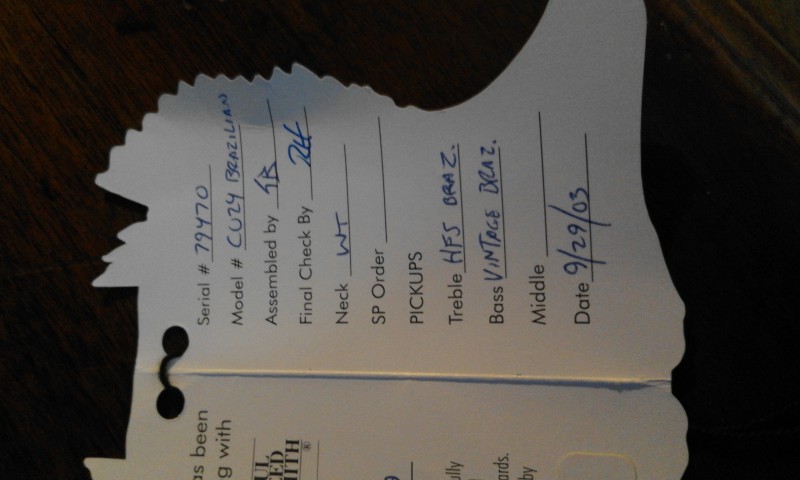 Serial # 79470
Model # CU24 BRAZILIAN
Assembled by
Final Check By
Neck WT
SP Order
PICKUPS
Treble HFS BRAZ.
Bass VINTAGE BRAZ.
Middle
Date 9/29/03
as been
g with
UL
ED
ITH
®
9
ully
ards.
by